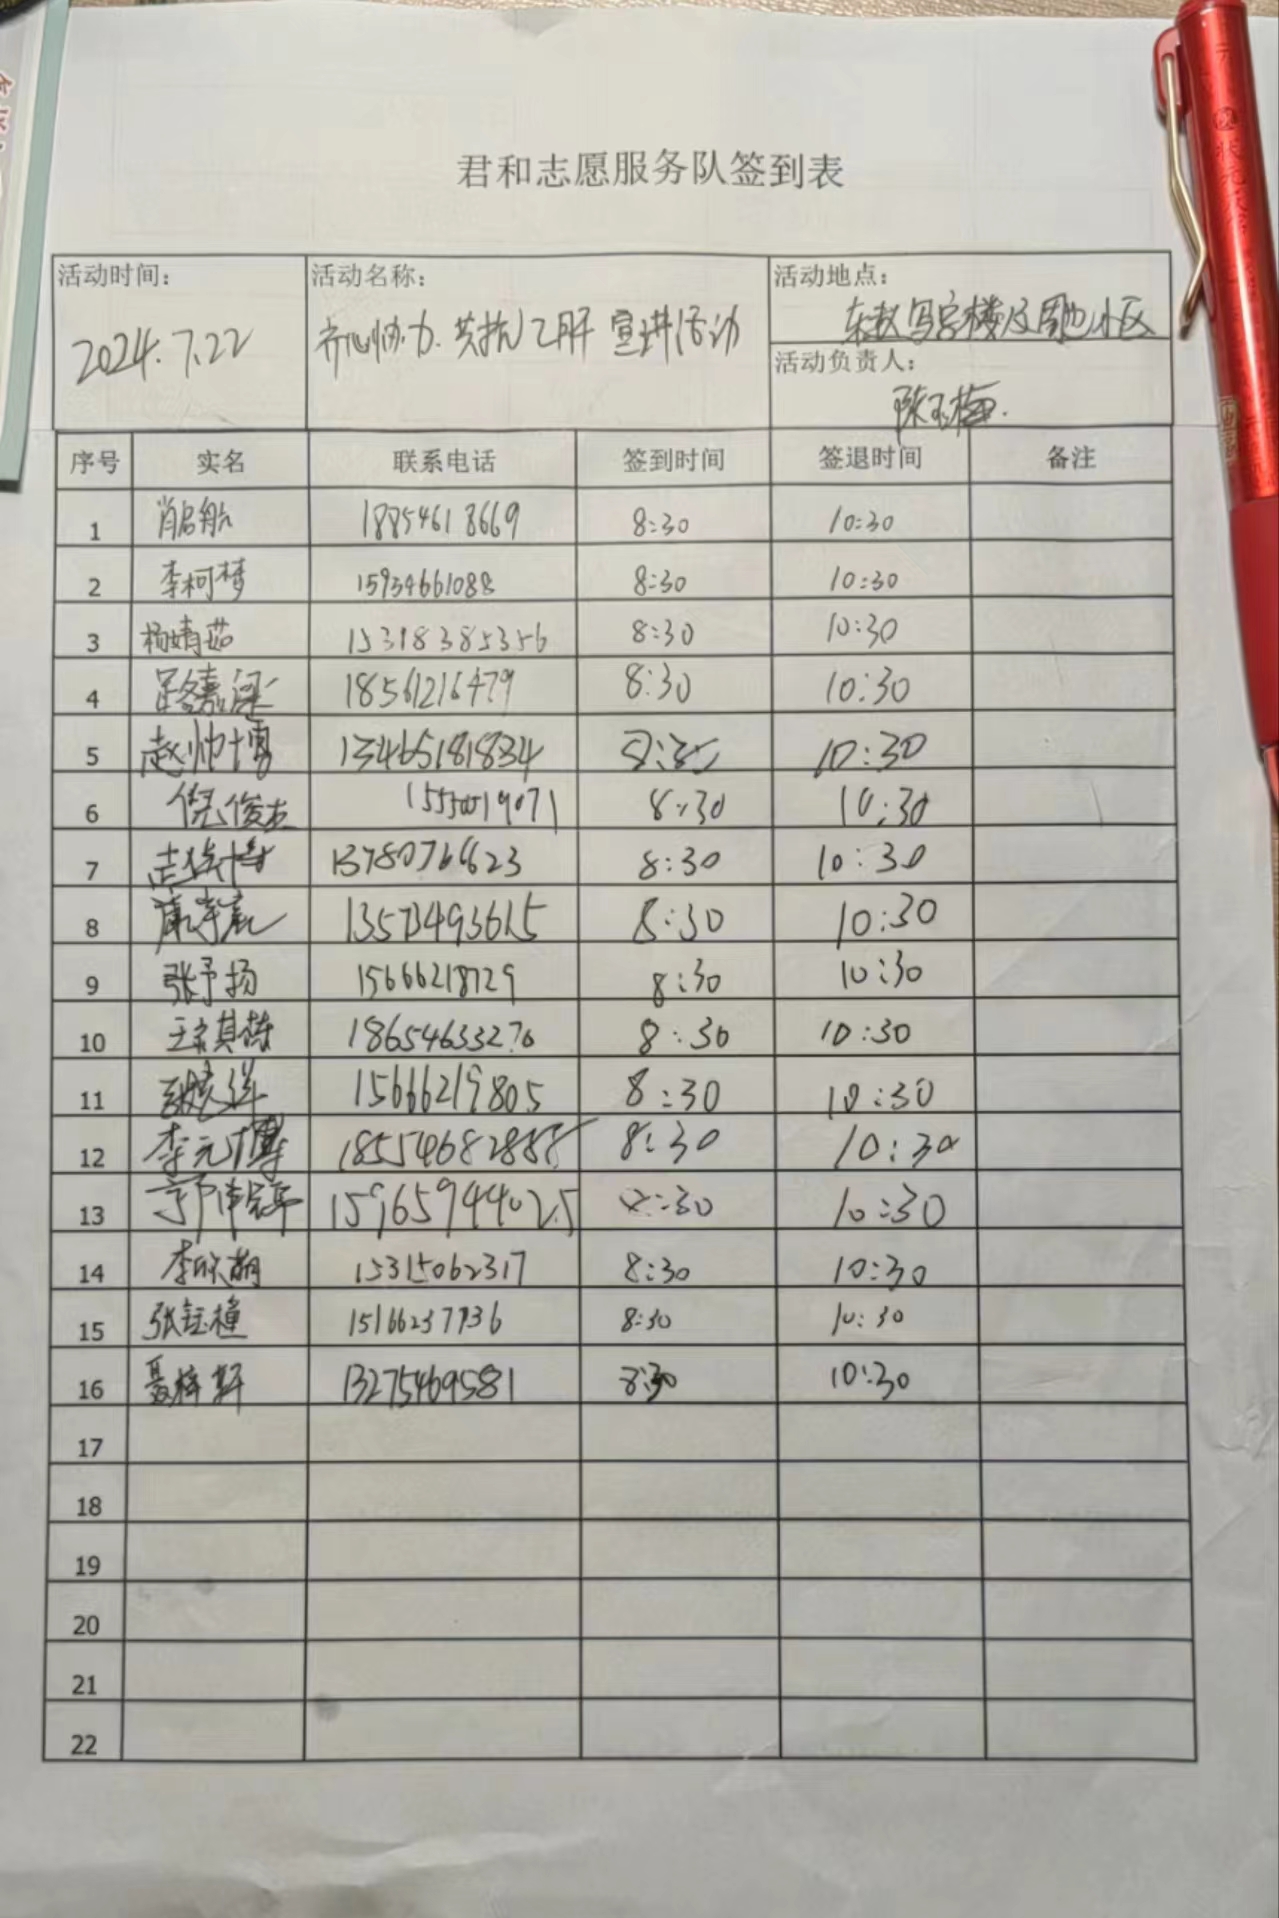 君和志愿服务队签到表
活动时间： 活动名称： 活动地点：
2024.7.22 齐心协力.共抗乙肝 宣讲活动 东赵写字楼及周边小区
活动负责人：
陈玉梅.
序号 实名 联系电话 签到时间 签退时间 备注
1 肖启航 18854618669 8:30 10:30
2 李柯梦 15954661088 8:30 10:30
3 杨婧茹 15318385356 8:30 10:30
4 18561216479 8:30 10:30
5 赵帅博 13465181834 10:30
6 倪俊杰 8:30 10:30
7 13780766623 8:30 10:30
8 8:30 10:30
9 张予扬 15666218729 8:30 10:30
10 18654633270 8:30 10:30
11 15666219805 8:30 10:30
12 李元博 8:30 10:30
13 15965944025 10:30
14 李欣萌 15315062317 8:30 10:30
15 张钰橦 8:30 10:30
16 聂梓轩 13275469581 8:30 10:30
17
18
19
20
21
22